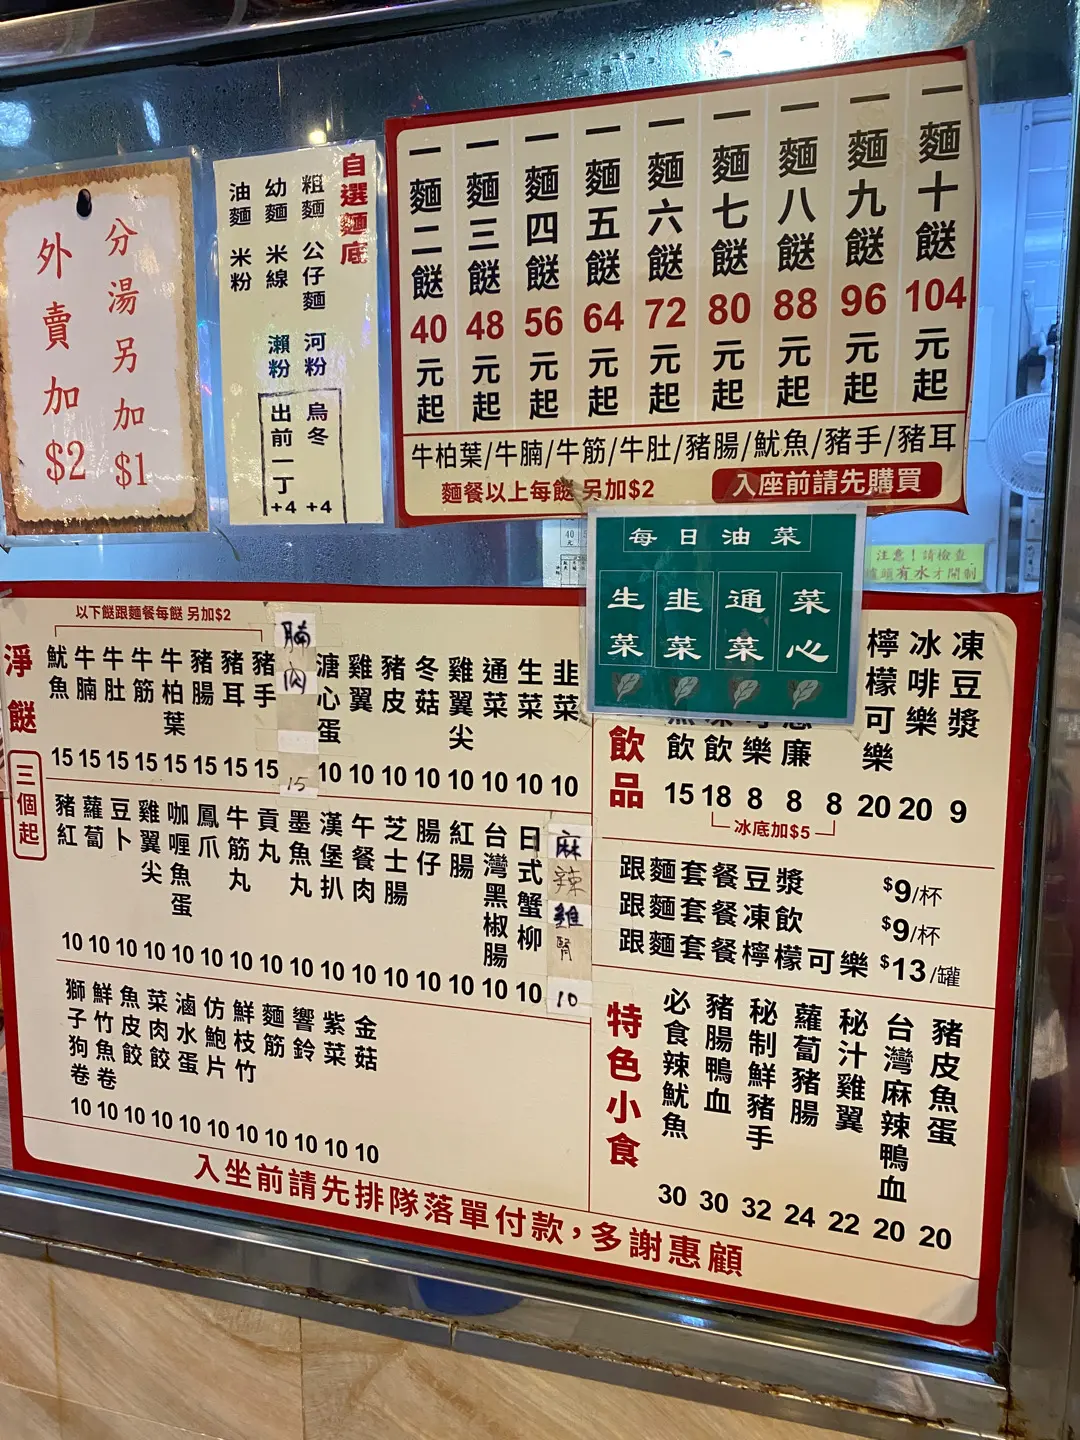 分湯另加$1
外賣加$2
自選麵底
粗麵 公仔麵 河粉 烏冬 +4
幼麵 米線 瀨粉 出前一丁 +4
油麵 米粉
一麵二餸 40元起
一麵三餸 48元起
一麵四餸 56元起
一麵五餸 64元起
一麵六餸 72元起
一麵七餸 80元起
一麵八餸 88元起
一麵九餸 96元起
一麵十餸 104元起
牛柏葉/牛腩/牛筋/牛肚/豬腸/魷魚/豬手/豬耳
麵餐以上每餸 另加$2
入座前請先購買
每日油菜
生菜 韭菜 通菜 菜心
注意!請檢查
有水才開制
以下餸跟麵餐每餸 另加$2
淨餸
三個起
魷魚 15
牛腩 15
牛肚 15
牛筋 15
牛柏葉 15
豬腸 15
豬耳 15
豬手 15
腩肉 15
溏心蛋 10
雞翼 10
豬皮 10
冬菇 10
雞翼尖 10
通菜 10
生菜 10
韭菜 10
豬紅 10
蘿蔔 10
豆卜 10
雞翼尖 10
咖喱魚蛋 10
鳳爪 10
牛筋丸 10
貢丸 10
墨魚丸 10
漢堡扒 10
午餐肉 10
芝士腸 10
腸仔 10
紅腸 10
台灣黑椒腸 10
日式蟹柳 10
麻辣雞腎 10
獅子狗卷 10
鮮竹魚卷 10
魚皮餃 10
菜肉餃 10
滷水蛋 10
仿鮑片 10
鮮枝竹 10
麵筋 10
響鈴 10
紫菜 10
金菇 10
飲品
飲 15
飲 18
樂 8
廉 8
8
檸檬可樂 20
冰啡樂 20
凍豆漿 9
冰底加$5
跟麵套餐豆漿 $9/杯
跟麵套餐凍飲 $9/杯
跟麵套餐檸檬可樂 $13/罐
特色小食
必食辣魷魚 30
豬腸鴨血 30
秘制鮮豬手 32
蘿蔔豬腸 24
秘汁雞翼 22
台灣麻辣鴨血 20
豬皮魚蛋 20
入坐前請先排隊落單付款，多謝惠顧